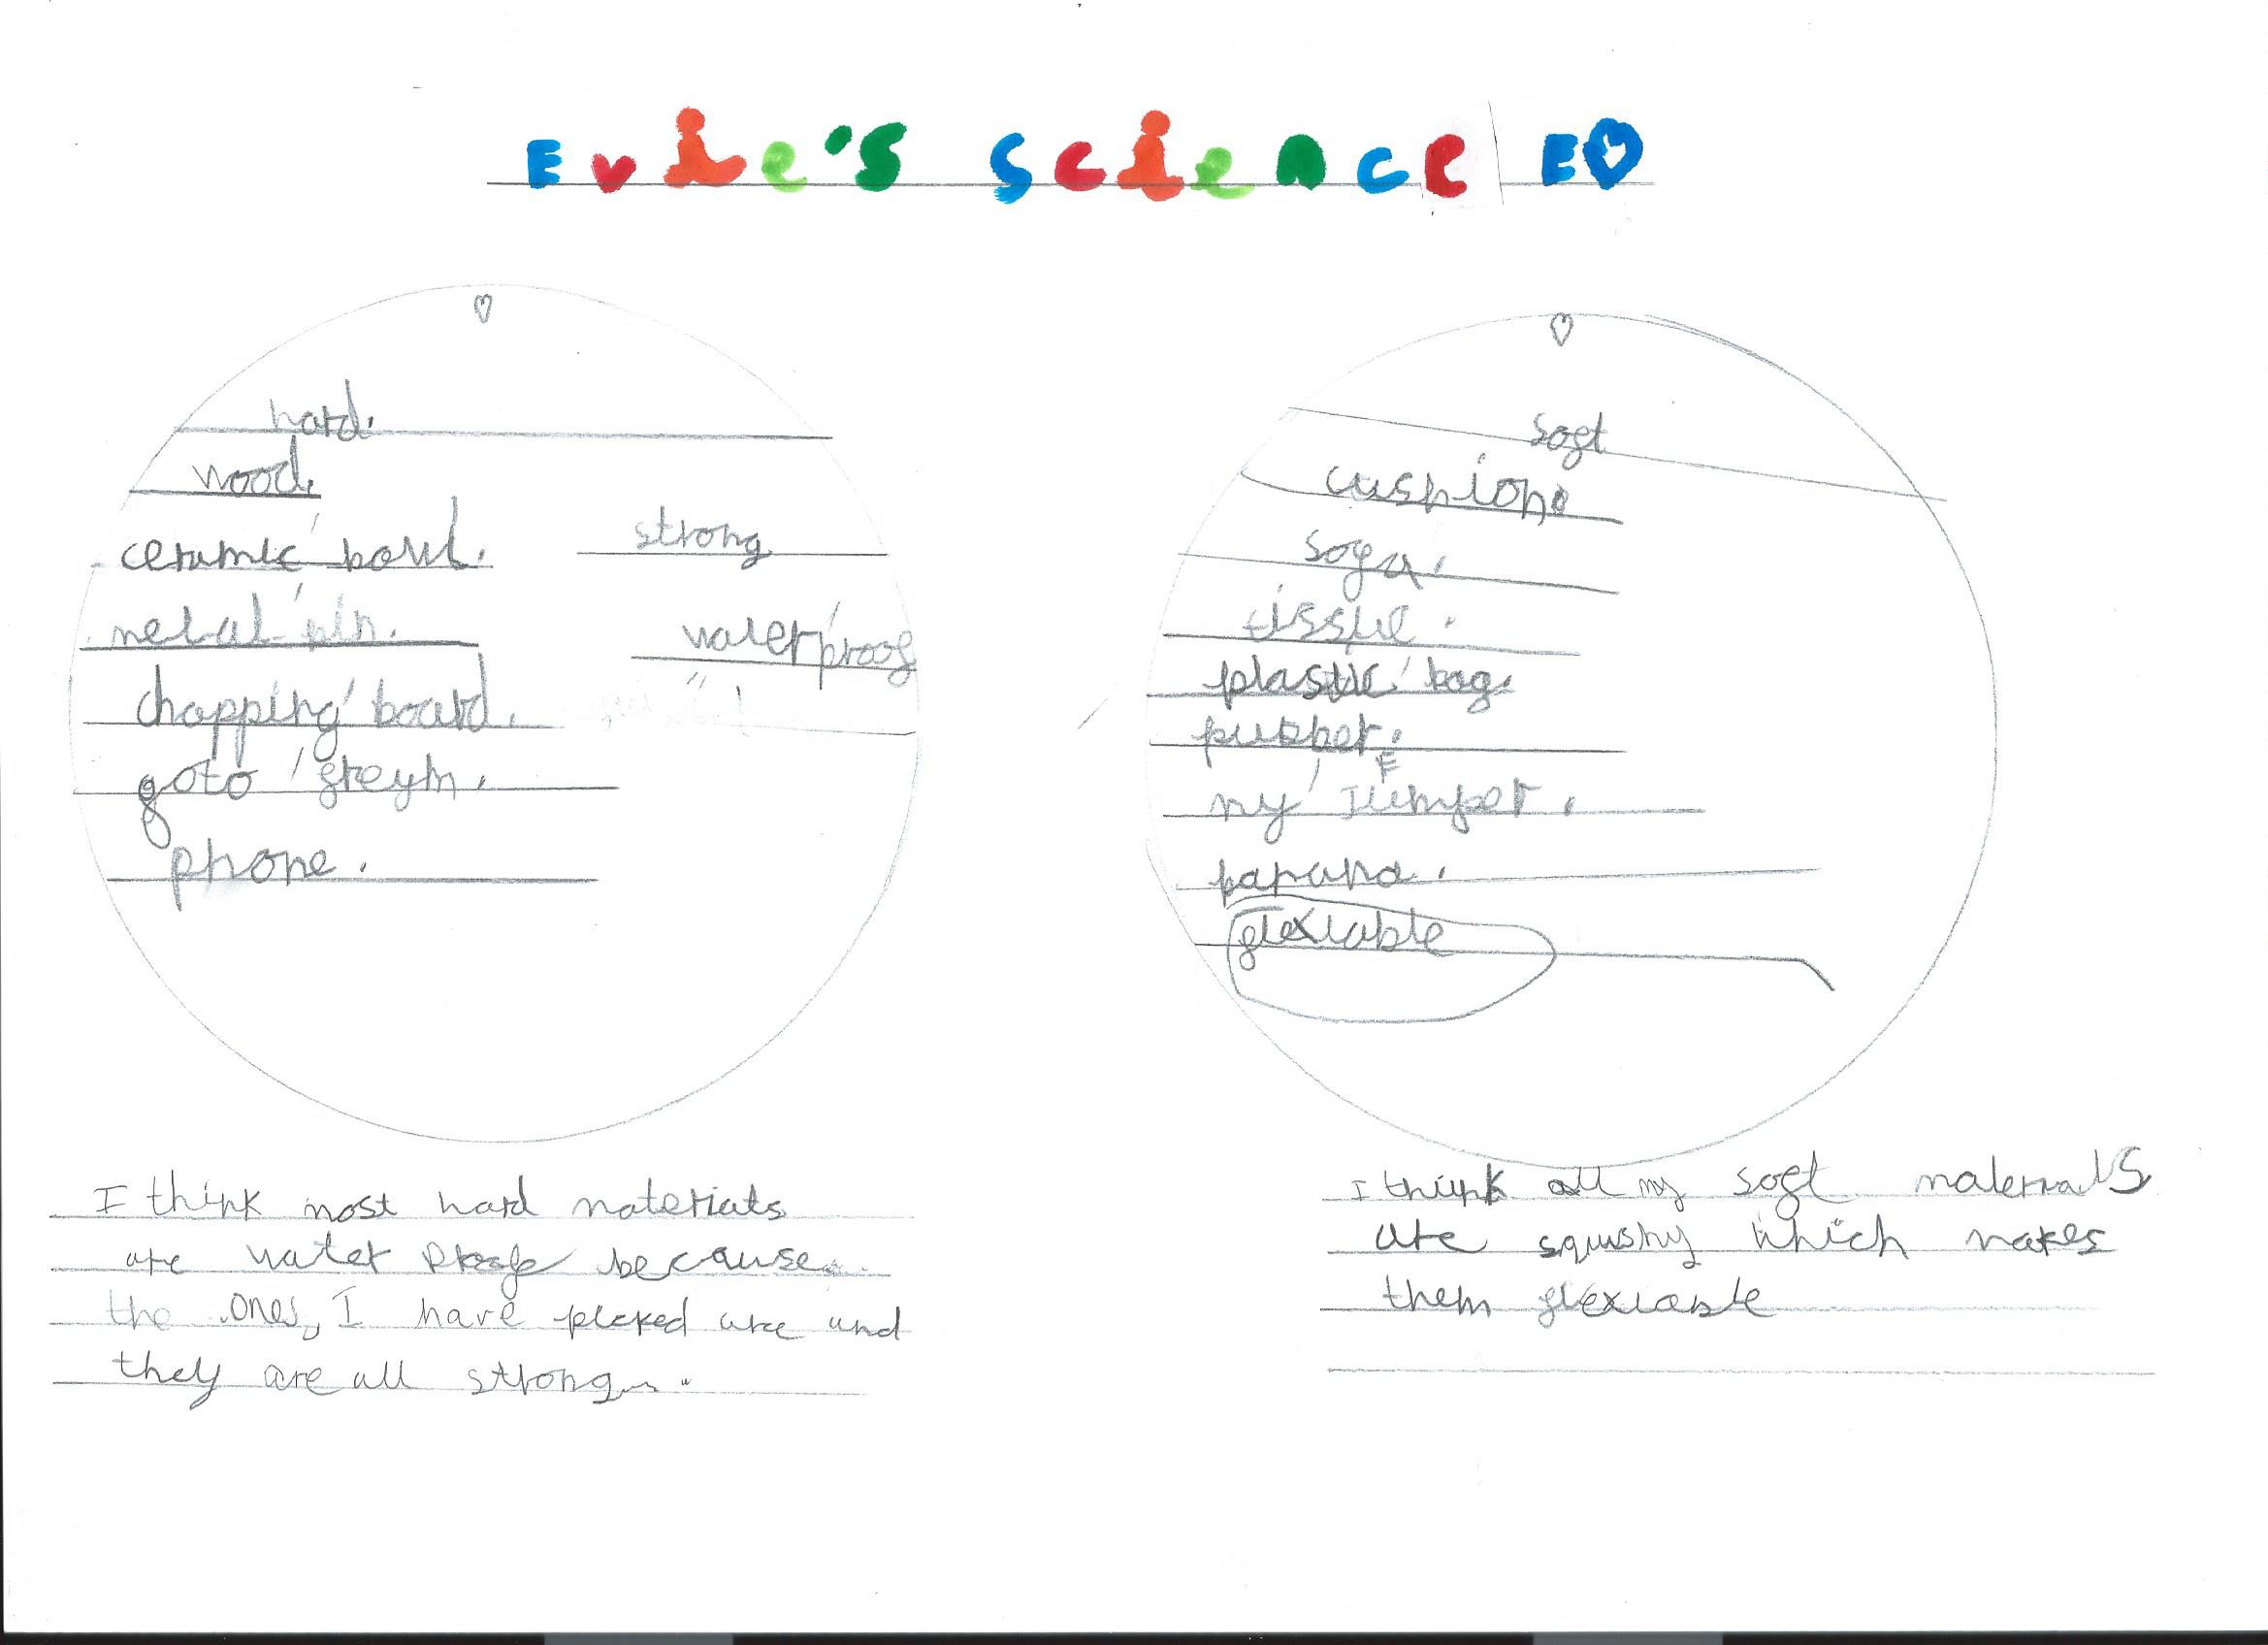 Evie's science E
hard.
wood.
ceramic bowl.
strong
metal pin.
waterproof
chopping board.
foto freym.
phone.
soft
cushion.
sofa.
tissue.
plastic bag.
my Jumper.
banana.
flexiable
I think most hard materials
are water proof because
the ones, I have picked are and
they are all strong.
I think all my soft materials
are squishy which makes
them flexiable